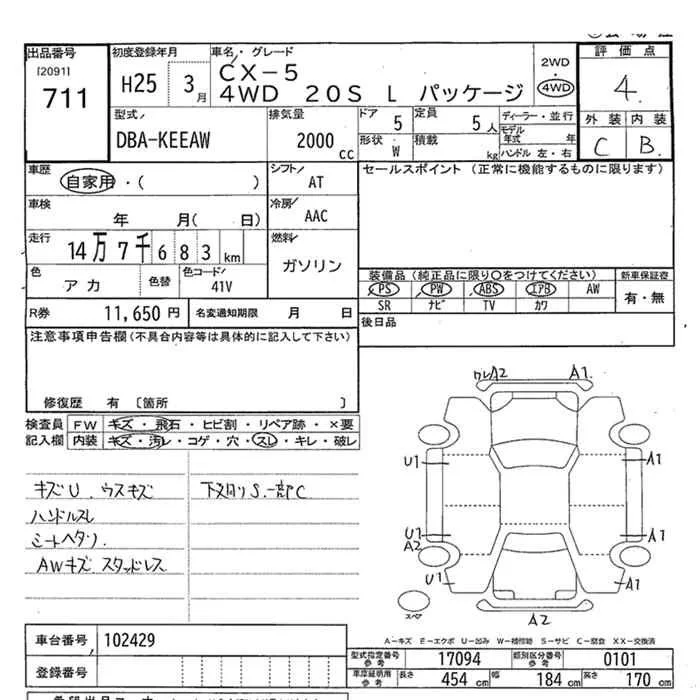 出品番号 初度登録年月 車名・グレード 2WD・4WD 評価点
[2091]
711
H25 3月
CX-5
4WD 20S L パッケージ
4.
型式 排気量 ドア 定員 ディーラー・並行 外装 内装
DBA-KEEAW 2000cc 5 5人 モデル年式 年 C B.
形状 W 積載 kg ハンドル 左・右
車歴 自家用・( ) シフト AT セールスポイント (正常に機能するものに限ります)
車検 年 月( 日) 冷房 AAC
走行 14万7千683km 燃料 ガソリン
色 アカ 色替 色コード 41V
装備品 (純正品に限り○をつけてください) 新車保証書
PS PW ABS エアB AW 有・無
SR ナビ TV カワ
R券 11,650円 名変通知期限 月 日 後日品
注意事項申告欄(不具合内容等は具体的に記入して下さい)
修復歴 有 〔箇所 〕
検査員記入欄 FW キズ・飛石・ヒビ割・リペア跡・×要
内装 キズ・汚レ・コゲ・穴・スレ・キレ・破レ
キズU. ウスキズ
ハンドルスレ
シートヘタリ.
AWキズ スタッドレス
下廻りS.一部C
ワレA2 A1.
U1 A1
U1 A1
A2
U1 A1
スペア
A2
A-キズ E-エクボ U-凹み W-補修跡 S-サビ C-腐食 XX-交換済
車台番号 102429
型式指定番号参考 17094 類別区分番号参考 0101
登録番号
車庫証明用参考 長さ 454cm 幅 184cm 高さ 170cm